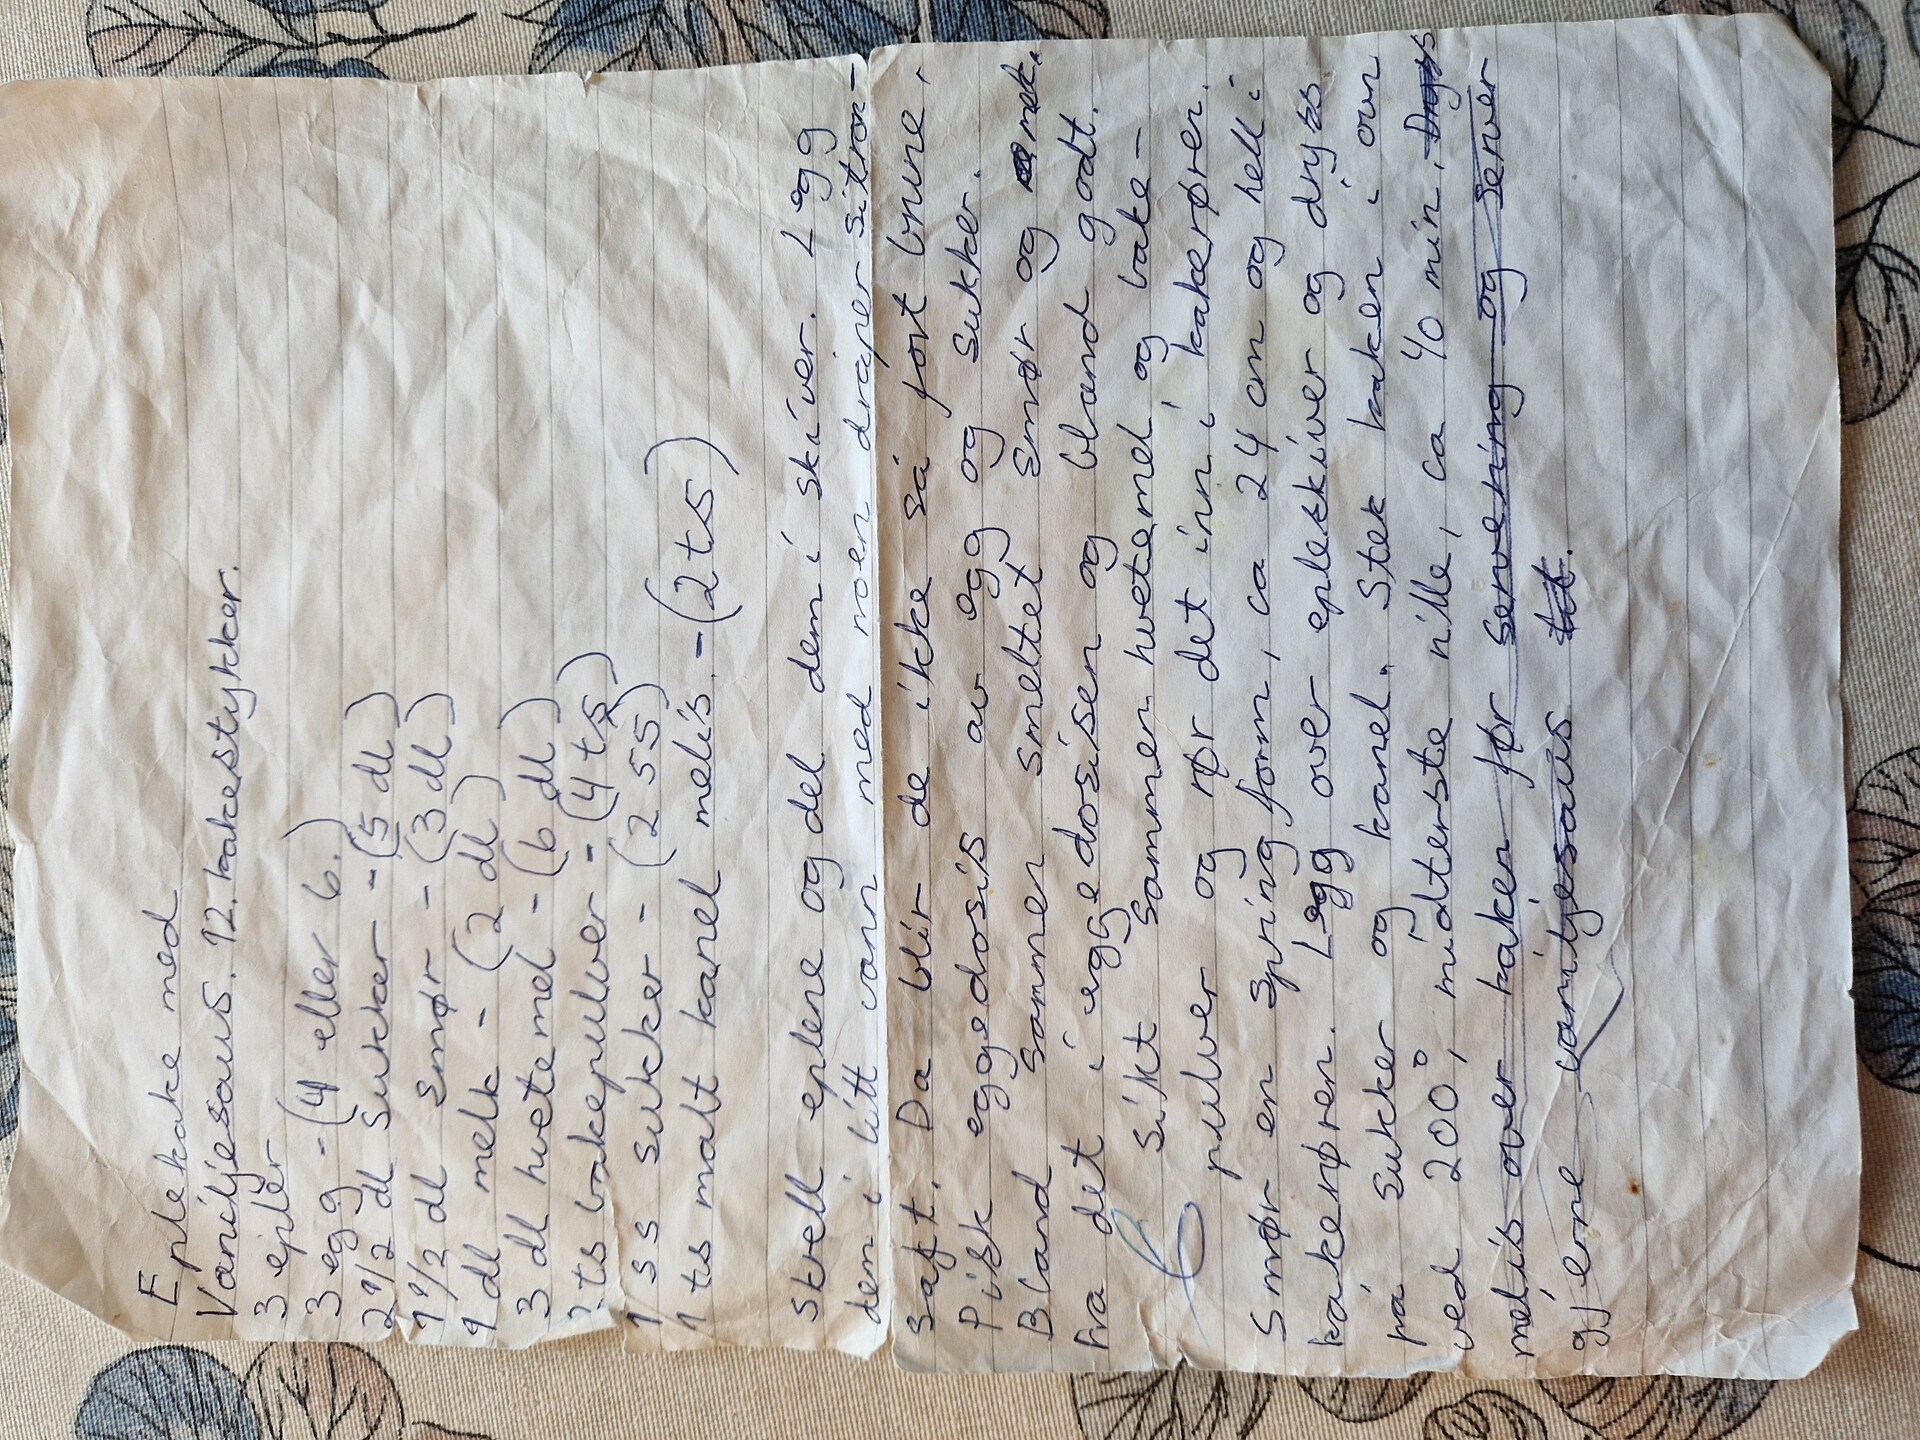 Eplekake med
Vaniljesaus. 12. kakestykker.
3 epler
3 egg - (4 eller 6.)
2 1/2 dl sukker - (5 dl)
1 1/2 dl smør - (3 dl)
1 dl melk - (2 dl)
3 dl hvetemel - (6 dl)
2 ts bakepulver - (4 ts)
1 ss sukker - (2 ss)
1 ts malt kanel melis. - (2 ts)
Skrell eplene og del dem i skiver. Legg
dem i litt vann med noen dråper sitron-
saft. Da blir de ikke så fort brune.
Pisk eggedosis av egg og sukker.
Bland sammen smeltet smør og melk.
Ha det i eggedosisen og bland godt.
Sikt sammen hvetemel og bake-
pulver og rør det inn i kakerøren.
Smør en springform, ca 24 cm og hell i
kakerøren. Legg over epleskiver og dryss
på sukker og kanel. Stek kaken i ovn
ved 200°, midterste rille, ca 40 min. Dryss
melis over kaken før servering og server
gjerne vaniljesaus til.